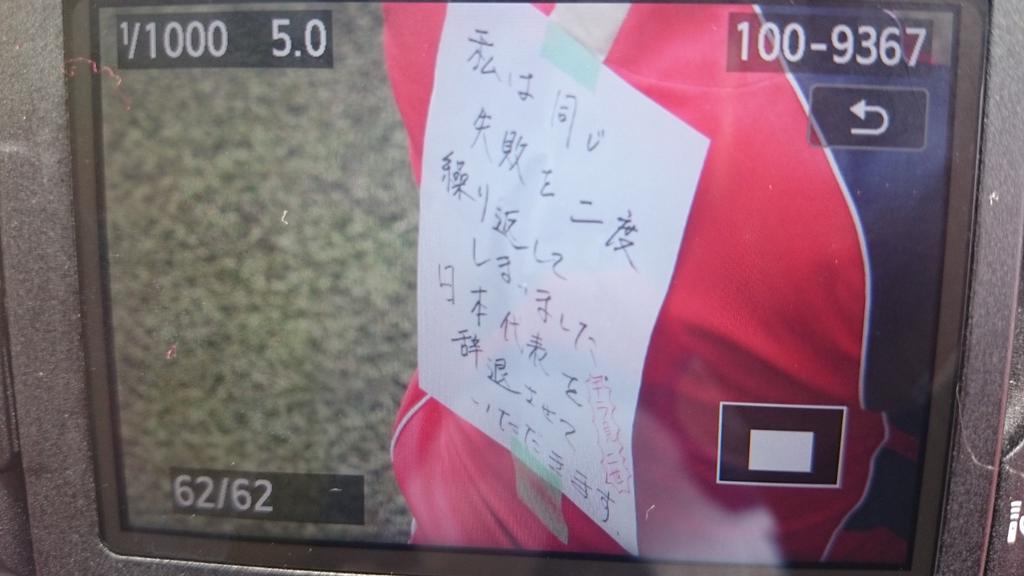 1/1000 5.0
100-9367
私は同じ
失敗を二度
繰り返して
しまいました
日本代表を
辞退させて
いただきます
62/62